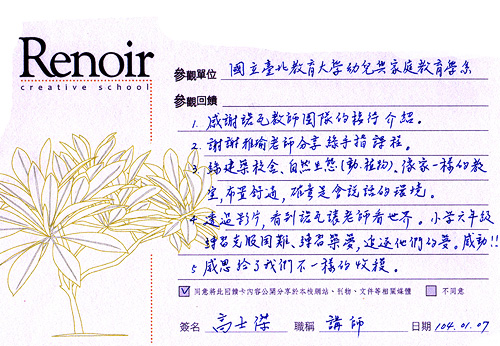 Renoir
creative school
參觀單位 國立臺北教育大學幼兒與家庭教育學系
參觀回饋
1. 感謝諾瓦教師團隊的接待介紹。
2. 謝謝雅瑜老師分享綠手指課程。
3. 綠建築校舍、自然生態(動.植物)、像家一樣的教
室,布置舒適,確意是會說話的環境。
4. 透過影片,看到諾瓦讓老師看世界。小學六年級
練習克服困難、練習築夢,追逐他們的夢。感動!!
5. 感恩給了我們不一樣的收穫。
同意將此回饋卡內容公開分享於本校網站、刊物、文件等相關媒體 不同意
簽名 高士傑 職稱 講師 日期 104.01.07